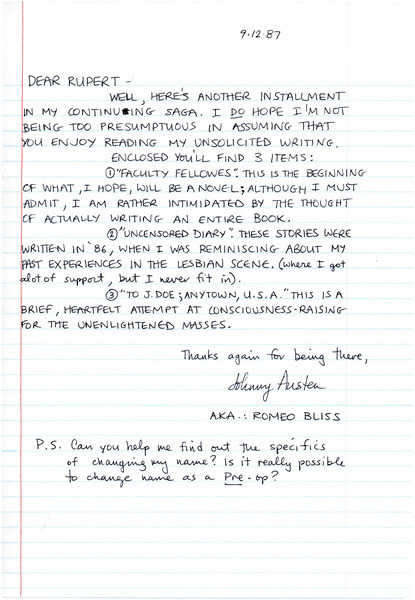 9·12·87
DEAR RUPERT -
WELL, HERE'S ANOTHER INSTALLMENT
IN MY CONTINUING SAGA. I DO HOPE I'M NOT
BEING TOO PRESUMPTUOUS IN ASSUMING THAT
YOU ENJOY READING MY UNSOLICITED WRITING.
ENCLOSED YOU'LL FIND 3 ITEMS:
① "FACULTY FELLOWES". THIS IS THE BEGINNING
OF WHAT, I HOPE, WILL BE A NOVEL; ALTHOUGH I MUST
ADMIT, I AM RATHER INTIMIDATED BY THE THOUGHT
OF ACTUALLY WRITING AN ENTIRE BOOK.
② "UNCENSORED DIARY". THESE STORIES WERE
WRITTEN IN '86, WHEN I WAS REMINISCING ABOUT MY
PAST EXPERIENCES IN THE LESBIAN SCENE. (where I got
alot of support, but I never fit in).
③ "TO J. DOE; ANYTOWN, U.S.A." THIS IS A
BRIEF, HEARTFELT ATTEMPT AT CONSCIOUSNESS-RAISING
FOR THE UNENLIGHTENED MASSES.
Thanks again for being there,
Johnny Austen
A.K.A.: ROMEO BLISS
P.S. Can you help me find out the specifics
of changing my name? Is it really possible
to change name as a Pre-op?